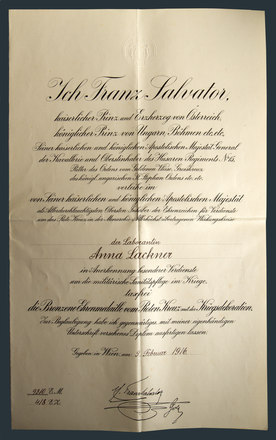 Ich Franz Salvator,
kaiserlicher Prinz und Erzherzog von Österreich,
königlicher Prinz von Ungarn, Böhmen etc. etc.
Seiner kaiserlichen und königlichen Apostolischen Majestät General
der Kavallerie und Oberstinhaber des Husaren Regiments № 15,
Ritter des Ordens vom Goldenen Vliese, Grosskreuz
des königl. ungarischen St. Stephan Ordens etc. etc.
verleihe im
von Seiner kaiserlichen und königlichen Apostolischen Majestät
als Stellvertreter
der Laborantin
Anna Lackner
in Anerkennung besonderer Verdienste
um die militärische Sanitätspflege im Kriege
taxfrei
die Bronzene Ehrenmedaille vom Roten Kreuz mit der Kriegsdekoration.
Zur Beglaubigung habe ich gegenwärtiges mit meiner eigenhändigen
Unterschrift versehenes Diplom ausfertigen lassen.
Gegeben in Wien am 5. Februar 1916